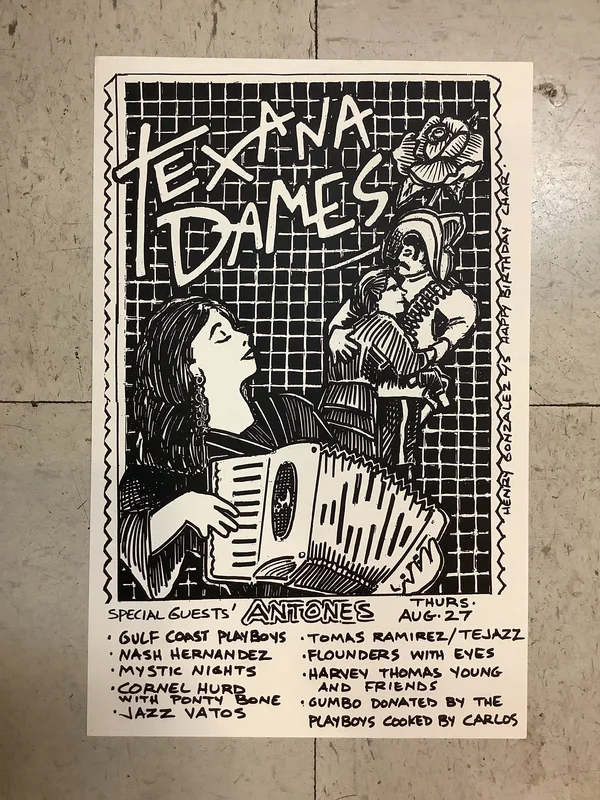 TEXANA
DAMES
HENRY GONZALEZ 95 HAPPY BIRTHDAY CHAR.
SPECIAL GUESTS' ANTONES THURS.
AUG. 27
· GULF COAST PLAYBOYS
· NASH HERNANDEZ
· MYSTIC NIGHTS
· CORNEL HURD
WITH PONTY BONE
· JAZZ VATOS
· TOMAS RAMIREZ/TEJAZZ
· FLOUNDERS WITH EYES
· HARVEY THOMAS YOUNG
AND FRIENDS
· GUMBO DONATED BY THE
PLAYBOYS COOKED BY CARLOS